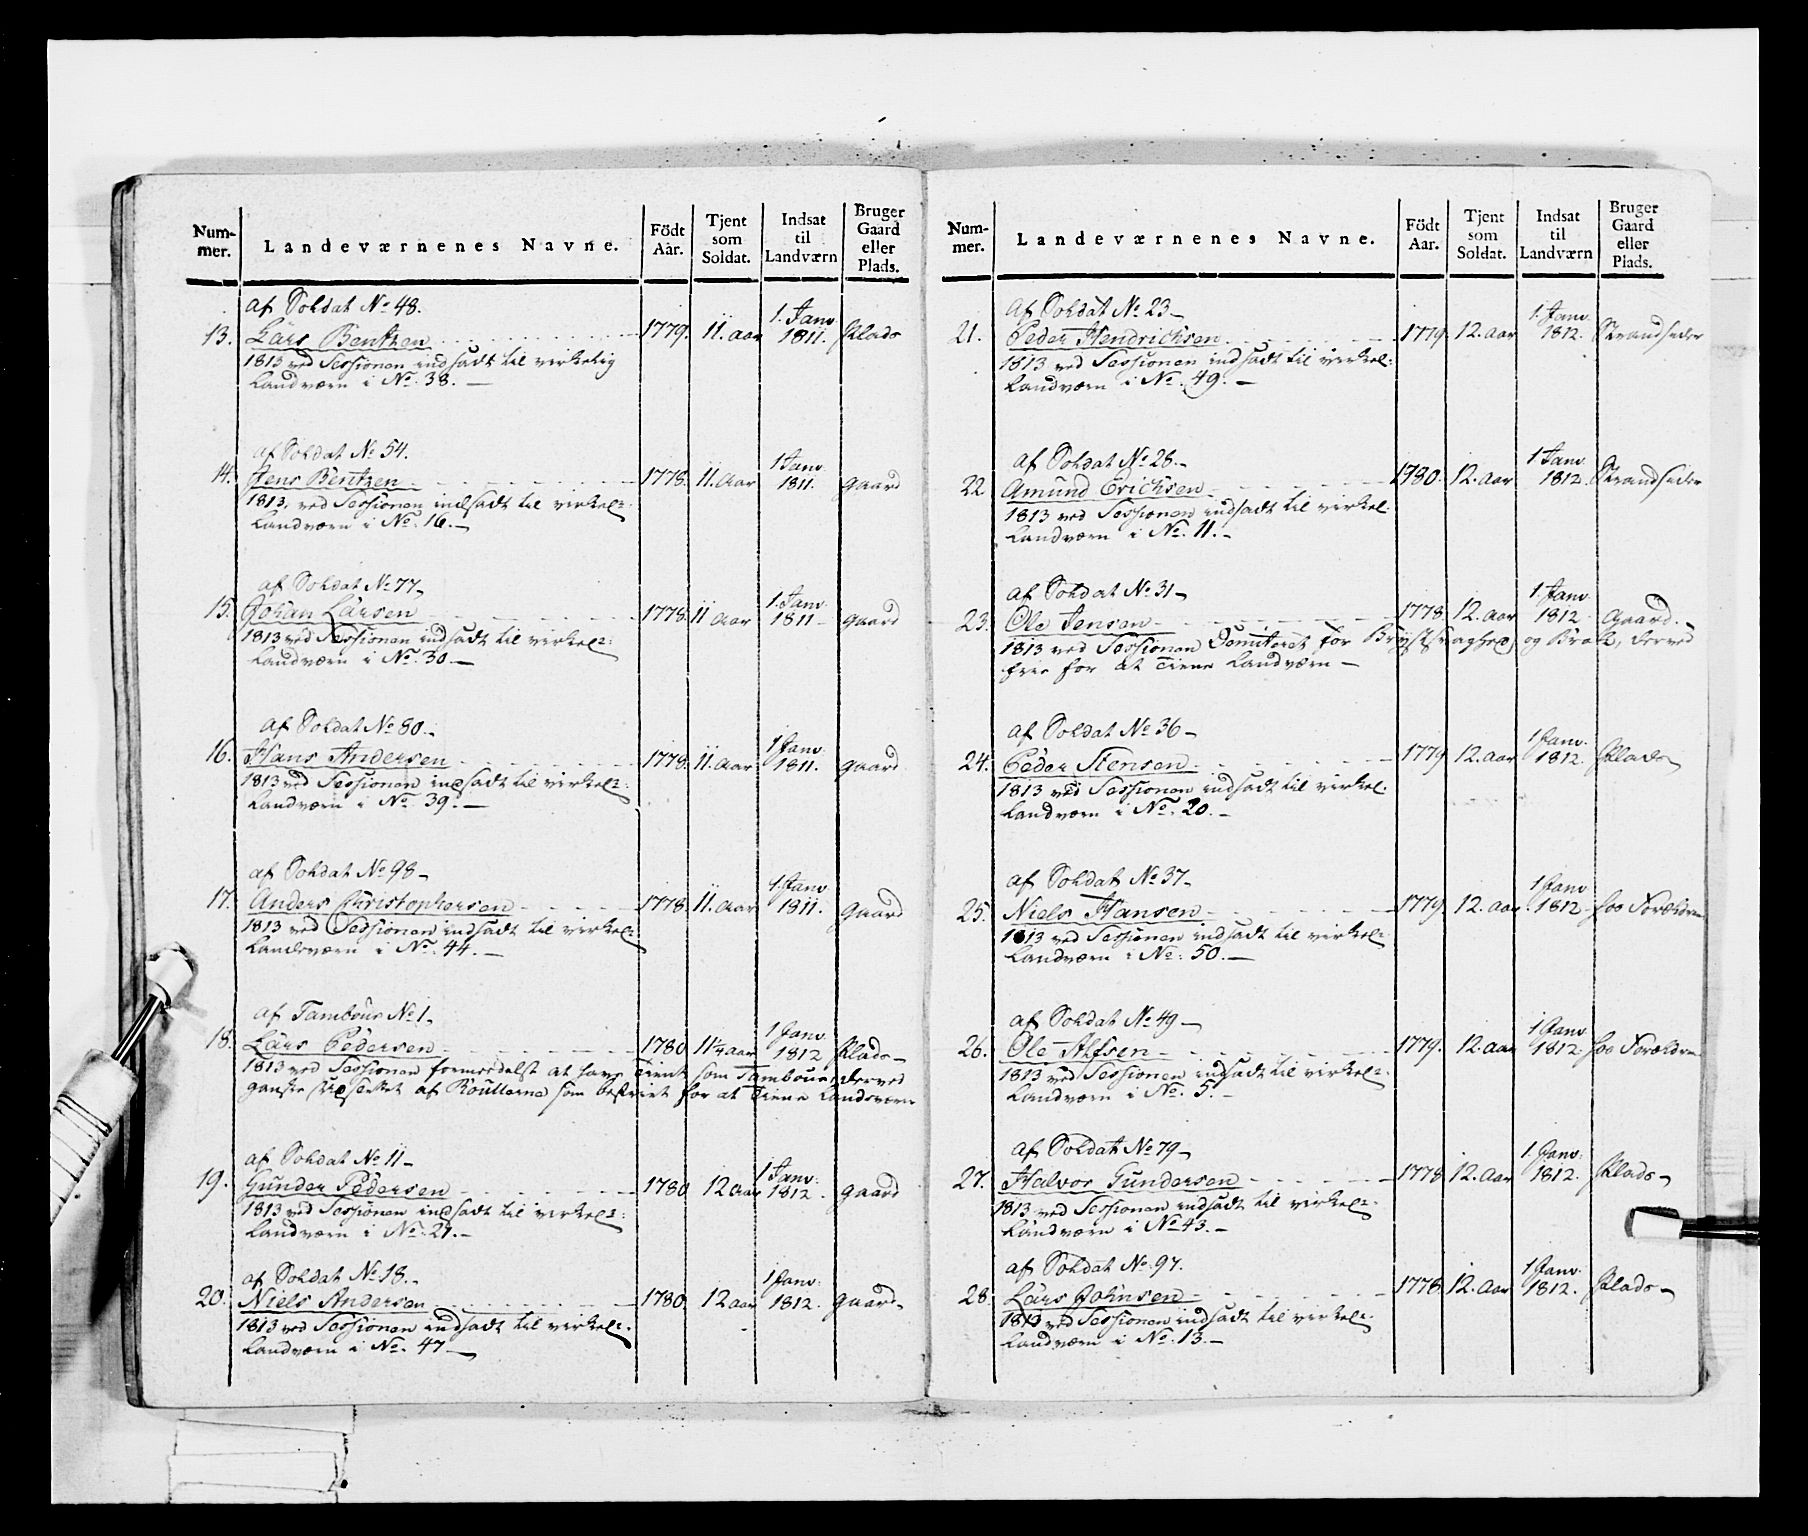 Num-mer. Landeværnenes Navne. Födt Aar. Tjent som Soldat. Indsat til Landværn Bruger Gaard eller Plads.
af Soldat No 48.
13. Lars Bentzen 1779. 11. aar 1. Janv. 1811. Plads
1813 ved Sessionen indsadt til virkelig
Landværn i No. 38. —
af Soldat No 54.
14. Jens Bentzen 1778. 11. aar 1 Janv. 1811. gaard
1813. ved Sessionen indsadt til virkel:
Landværn i No. 16. —
af Soldat No 77
15. Johan Larsen 1778. 11 aar 1. Janv. 1811 gaard
1813 ved Sessionen indsadt til virkel:
Landværn i No. 30. —
af Soldat No 80.
16. Hans Andersen 1778. 11. aar 1 Janv. 1811. gaard
1813 ved Sessionen indsadt til virkel:
Landværn i No. 39. —
af Soldat No 98
17. Anders Christophersen 1778. 11. aar 1. Janv 1811. gaard
1813 ved Sessionen indsadt til virkel:
Landeværn i No. 44. —
af Tambour No 1
18. Lars Pedersen 1780 11 1/4 aar 1 Janv. 1812 Plads
1813 ved Sessionen formedelst at have tient som Tambour, derved
ganske af Roullerne som befriet for at tiene Landeværn
af Soldat No 11
19. Gunder Pedersen 1780 12 aar 1 Janv: 1812. gaard
1813 ved Sessionen indsadt til virkel:
Landværn i No. 21. —
af Soldat No 18.
20. Niels Andersen 1780 12 aar 1 Janv: 1812. gaard
1813 ved Sessionen indsadt til virkel:
Landværn i No. 47 —
Num-mer. Landeværnenes Navne. Födt Aar. Tjent som Soldat. Indsat til Landværn Bruger Gaard eller Plads.
af Soldat No 23
21. Peder Hendrichsen 1779. 12. aar 1. Janv. 1812. Strandsider
1813 ved Sessionen indsadt til virkel:
Landværn i No. 49. —
af Soldat No 28.
22. Amund Erichsen 1780. 12. aar 1 Janv. 1812. Strandsider
1813 ved Sessionen indsadt til virkel.
Landværn i No. 11. —
af Soldat No 31
23. Ole Jensen 1778. 12. aar 1. Janv. 1812. Gaard.
1813 ved Sessionen Demiteret for Brystsvaghed, og Brok, derved
frie for at tiene Landværn —
af Soldat No 36
24. Peder Stensen 1779 12. aar 1 Janv. 1812. Plads
1813 ved Sessionen indsadt til virkel.
Landværn i No. 20. —
af Soldat No 37
25. Niels Hansen 1779 12. aar 1 Janv 1812. hos Forældrene
1813 ved Sessionen indsadt til virkel:
Landværn i No. 50. —
af Soldat No 49
26. Ole Alfsen 1779. 12. aar 1 Janv 1812. hos Forældrene
1813 ved Sessionen indsadt til virkel:
Landværn i No. 5. —
af Soldat No 79
27. Halvor Gundersen 1778 12. aar 1. Janv: 1812. Plads
1813 ved Sessionen indsadt til virkel:
Landværn i No 43. —
af Soldat No. 97.
28. Lars Johnsen 1778. 12. aar 1 Janv. 1812. Plads
1813 ved Sessionen indsadt til virkel:
Landværn i No. 13. —